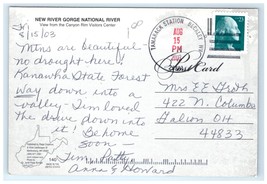 NEW RIVER GORGE NATIONAL RIVER
View from the Canyon Rim Visitors Center
8/15/03
Mtns are beautiful
no drought here!
Kanawha State Forest
Way down into a
valley - Jim loved
the drive down into
it! Be home
soon -
Jim
Anna & Howard
AUG
15
PM
Post Card
Mrs EE Groth
422 N. Columbus
Galion, OH
44833